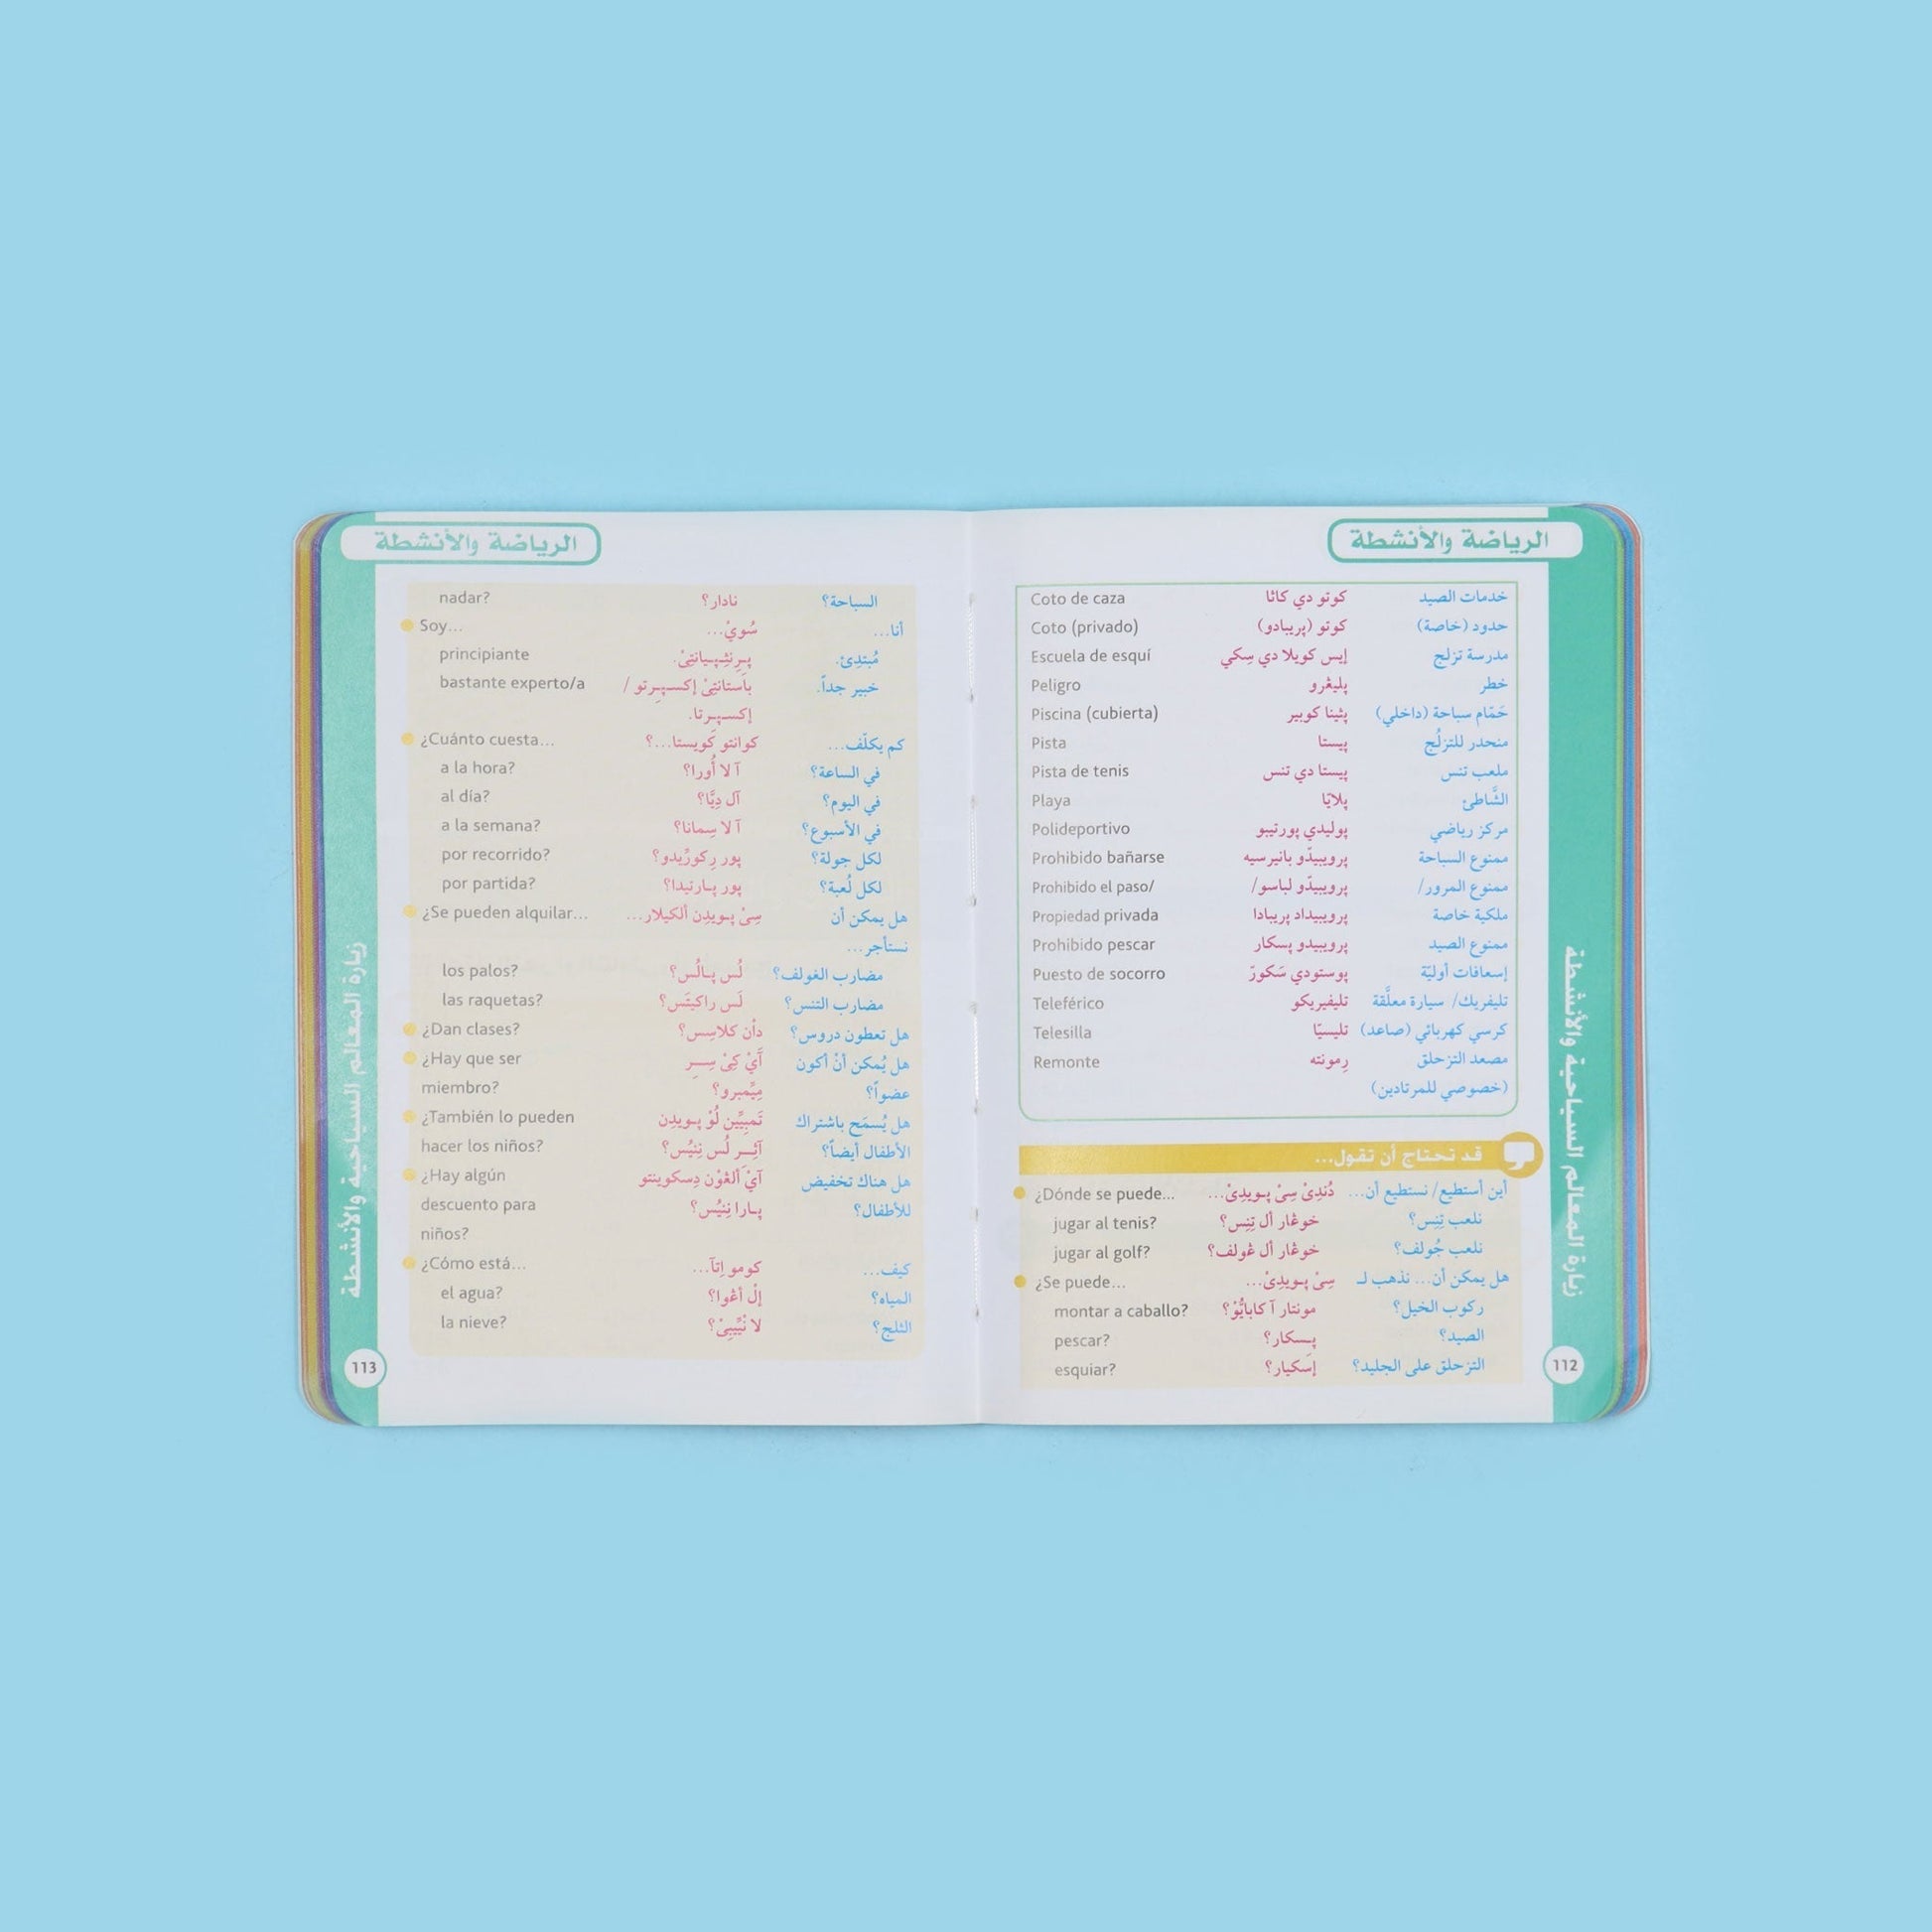 الرياضة والأنشطة
خدمات الصيد كوتو دي كاثا Coto de caza
حدود (خاصة) كوتو (پريبادو) Coto (privado)
مدرسة تزلج إيس كويلا دي سِكي Escuela de esquí
خطر پليڠرو Peligro
حَمّام سباحة (داخلي) پثينا كوبير Piscina (cubierta)
منحدر للتزلُج پيستا Pista
ملعب تنس پيستا دي تنس Pista de tenis
الشَّاطئ پلايّا Playa
مركز رياضي پوليدي پورتيبو Polideportivo
ممنوع السباحة پروييبدّو بانيرسيه Prohibido bañarse
ممنوع المرور/ پروييبدّو لباسو/ Prohibido el paso/
ملكية خاصة پروبيبداد پريبادا Propiedad privada
ممنوع الصيد پروييبدو پسكار Prohibido pescar
إسعافات أوليّة پوستودي سَكورّ Puesto de socorro
تليفريك/ سيارة معلَّقة تليفيريكو Teleférico
كرسي كهربائي (صاعد) تليسيّا Telesilla
مصعد التزحلق رِمونته Remonte
(خصوصي للمرتادين)
قد تحتاج أن تقول...
أين أستطيع/ نستطيع أن... دُندِىْ سِىْ پـويدِىْ... ¿Dónde se puede...
نلعب تِنِس؟ خوڠار أل تِنِس؟ jugar al tenis?
نلعب جُولف؟ خوڠار أل ڠولف؟ jugar al golf?
هل يمكن أن... نذهب لـ سِىْ پـويدِىْ... ¿Se puede...
ركوب الخيل؟ مونتار آ كابايُّوْ؟ montar a caballo?
الصيد؟ پـسكار؟ pescar?
التزحلق على الجليد؟ إسكيار؟ esquiar?
زيارة المعالم السياحية والأنشطة
112
الرياضة والأنشطة
السباحة؟ نادار؟ nadar?
أنا... سُويْ... Soy...
مُبتدِئ. پـرِنثِـپـيانتِىْ. principiante
خبير جداً. باستانتِىْ إكسـپـرتو / bastante experto/a
إكسـپـرتا.
كم يكلّف... كوانتو كويستا...؟ ¿Cuánto cuesta...
في الساعة؟ آ لا أُورا؟ a la hora?
في اليوم؟ آل دِيّا؟ al día?
في الأسبوع؟ آ لا سِمانا؟ a la semana?
لكل جولة؟ پور رِكورِّيدو؟ por recorrido?
لكل لُعبة؟ پور پـارتيدا؟ por partida?
هل يمكن أن سِىْ پـويدِن ألكيلار... ¿Se pueden alquilar...
نستأجر...
مضارب الغولف؟ لُس پـالُس؟ los palos?
مضارب التنس؟ لَس راكيتَس؟ las raquetas?
هل تعطون دروس؟ دأن كلاسِس؟ ¿Dan clases?
هل يُمكن أنْ أكون آيْ كِىْ سِـر ¿Hay que ser
عضواً؟ مِيِّمبرو؟ miembro?
هل يُسمَح باشتراك تَمبِيِّن لُوْ پـويدِن ¿También lo pueden
الأطفال أيضاً؟ آثِـر لُس نِنيُس؟ hacer los niños?
هل هناك تخفيض آيْ ألڠوْن دِسكوينتو ¿Hay algún
للأطفال؟ پـارا نِنيُس؟ descuento para
niños?
كيف... كومو إتآ... ¿Cómo está...
المياه؟ إلْ أڠوا؟ el agua?
الثلج؟ لا نْيِّيبِىْ؟ la nieve?
زيارة المعالم السياحية والأنشطة
113